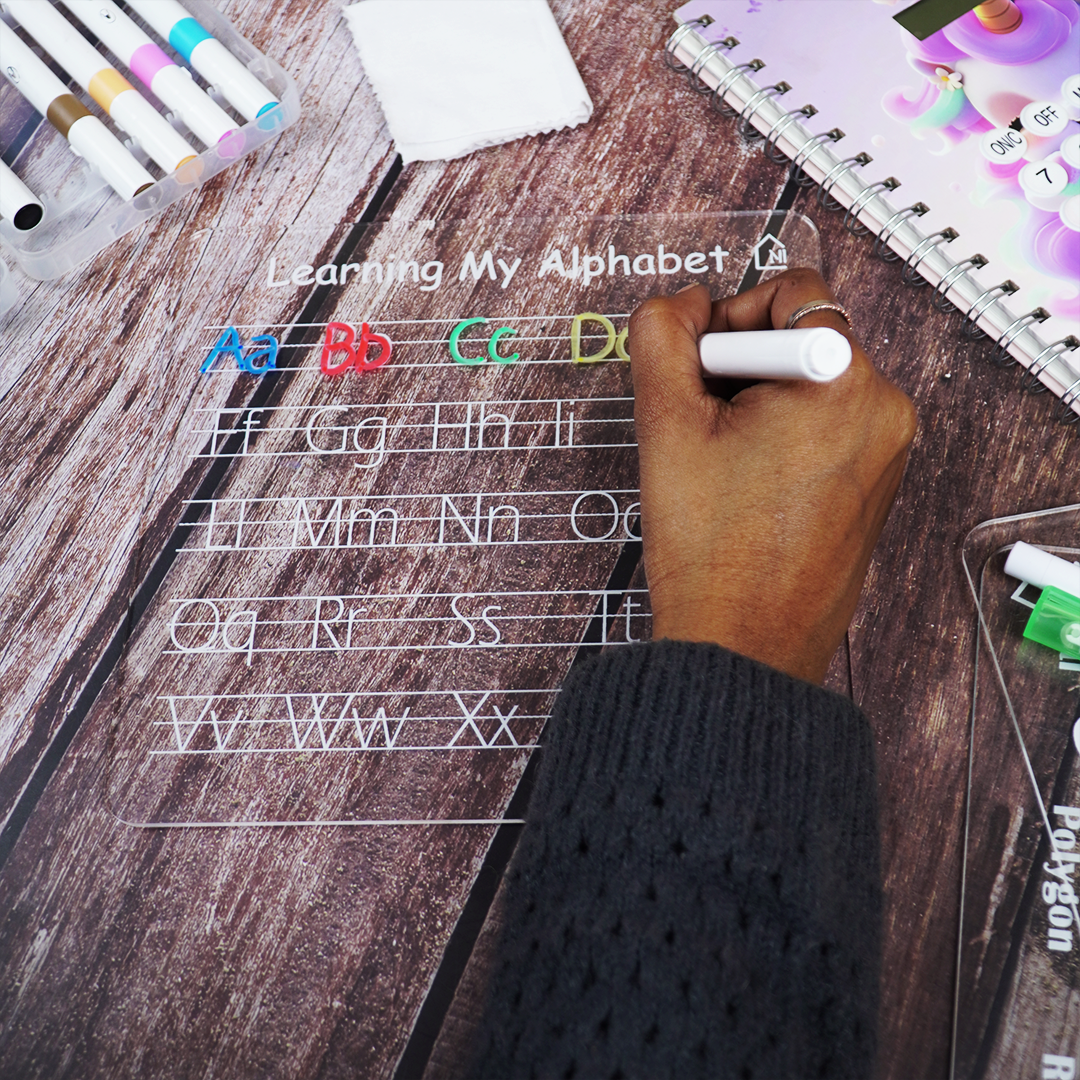 Learning My Alphabet NI
Aa Bb Cc Dd
Ff Gg Hh Ii
Ll Mm Nn Oo
Qq Rr Ss Tt
Vv Ww Xx
ON/C OFF
7
Polygon